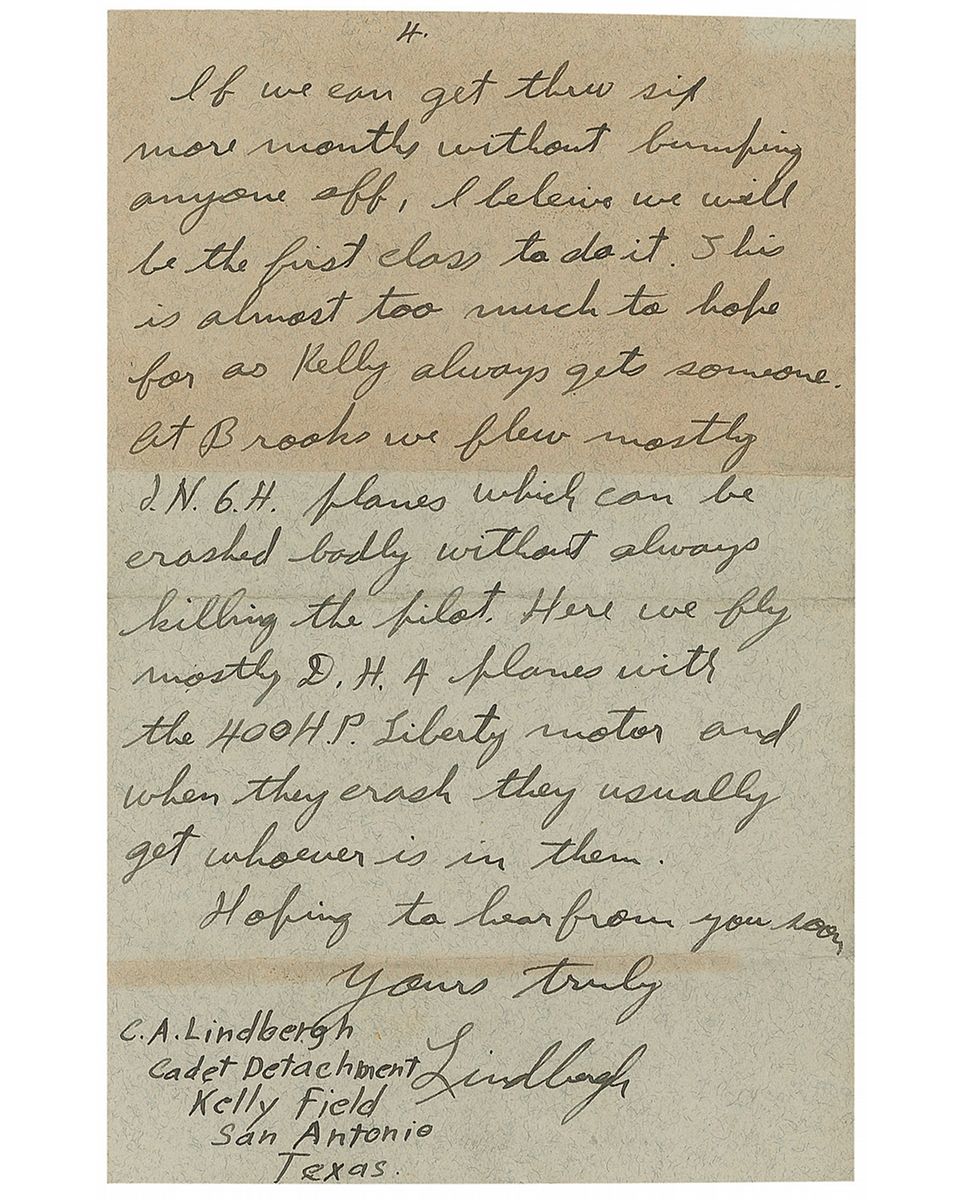 4.
If we can get thru six
more months without bumping
anyone off, I beleive we will
be the first class to do it. This
is almost too much to hope
for as Kelly always gets someone.
At Brooks we flew mostly
J.N.6.H. planes which can be
crashed badly without always
killing the pilot. Here we fly
mostly D.H.4 planes with
the 400H.P. Liberty motor and
when they crash they usually
get whoever is in them.
Hoping to hear from you soon
Yours truly
Lindbergh
C.A. Lindbergh
Cadet Detachment
Kelly Field
San Antonio
Texas.